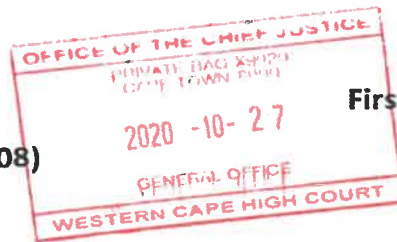 OFFICE OF THE CHIEF JUSTICE
PRIVATE BAG
CAPE TOWN
Firs
2020 -10- 27
08)
GENERAL OFFICE
WESTERN CAPE HIGH COURT